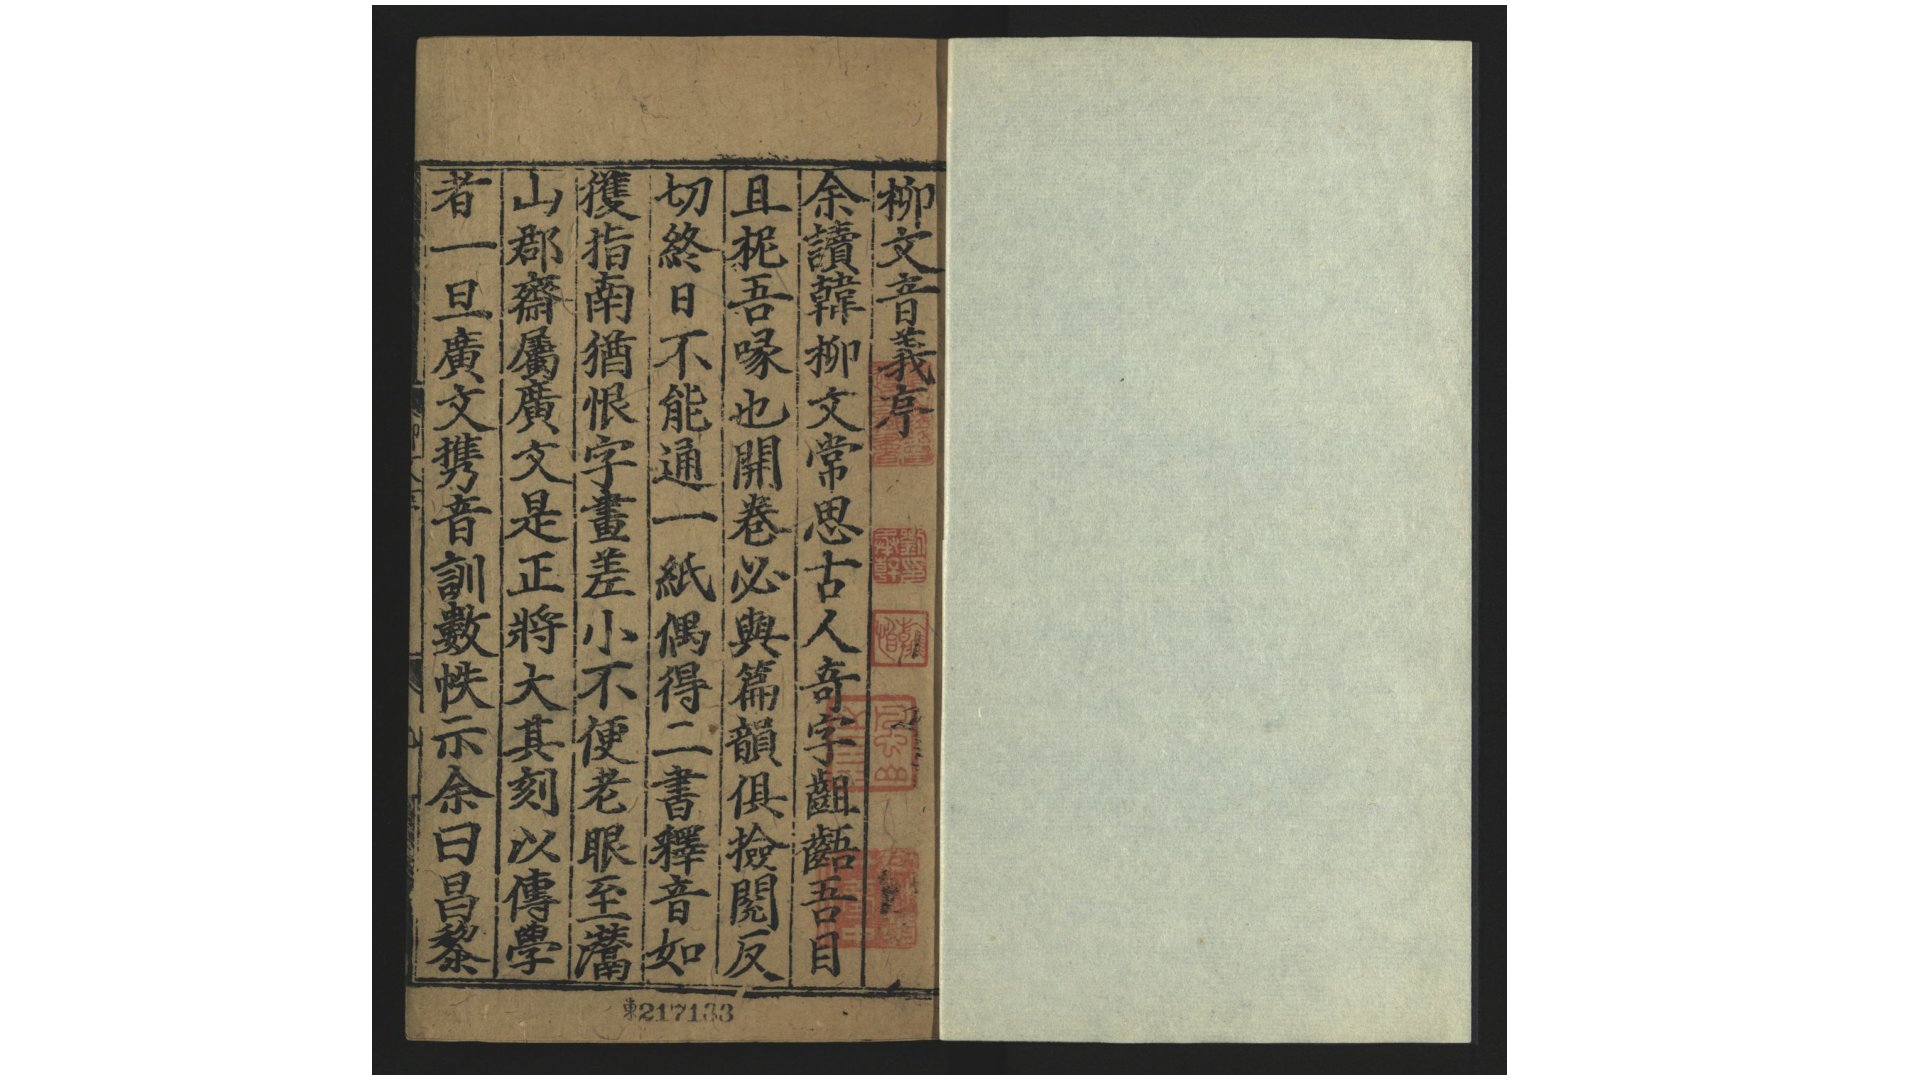 柳文音義序
余讀韓柳文常思古人奇字齟齬吾目
且棿吾喙也開卷必與篇韻俱撿閱反
切終日不能通一紙偶得二書釋音如
獲指南猶恨字畫差小不便老眼至灊
山郡齋屬廣文是正將大其刻以傳學
者一旦廣文携音訓數帙示余曰昌黎
東217133